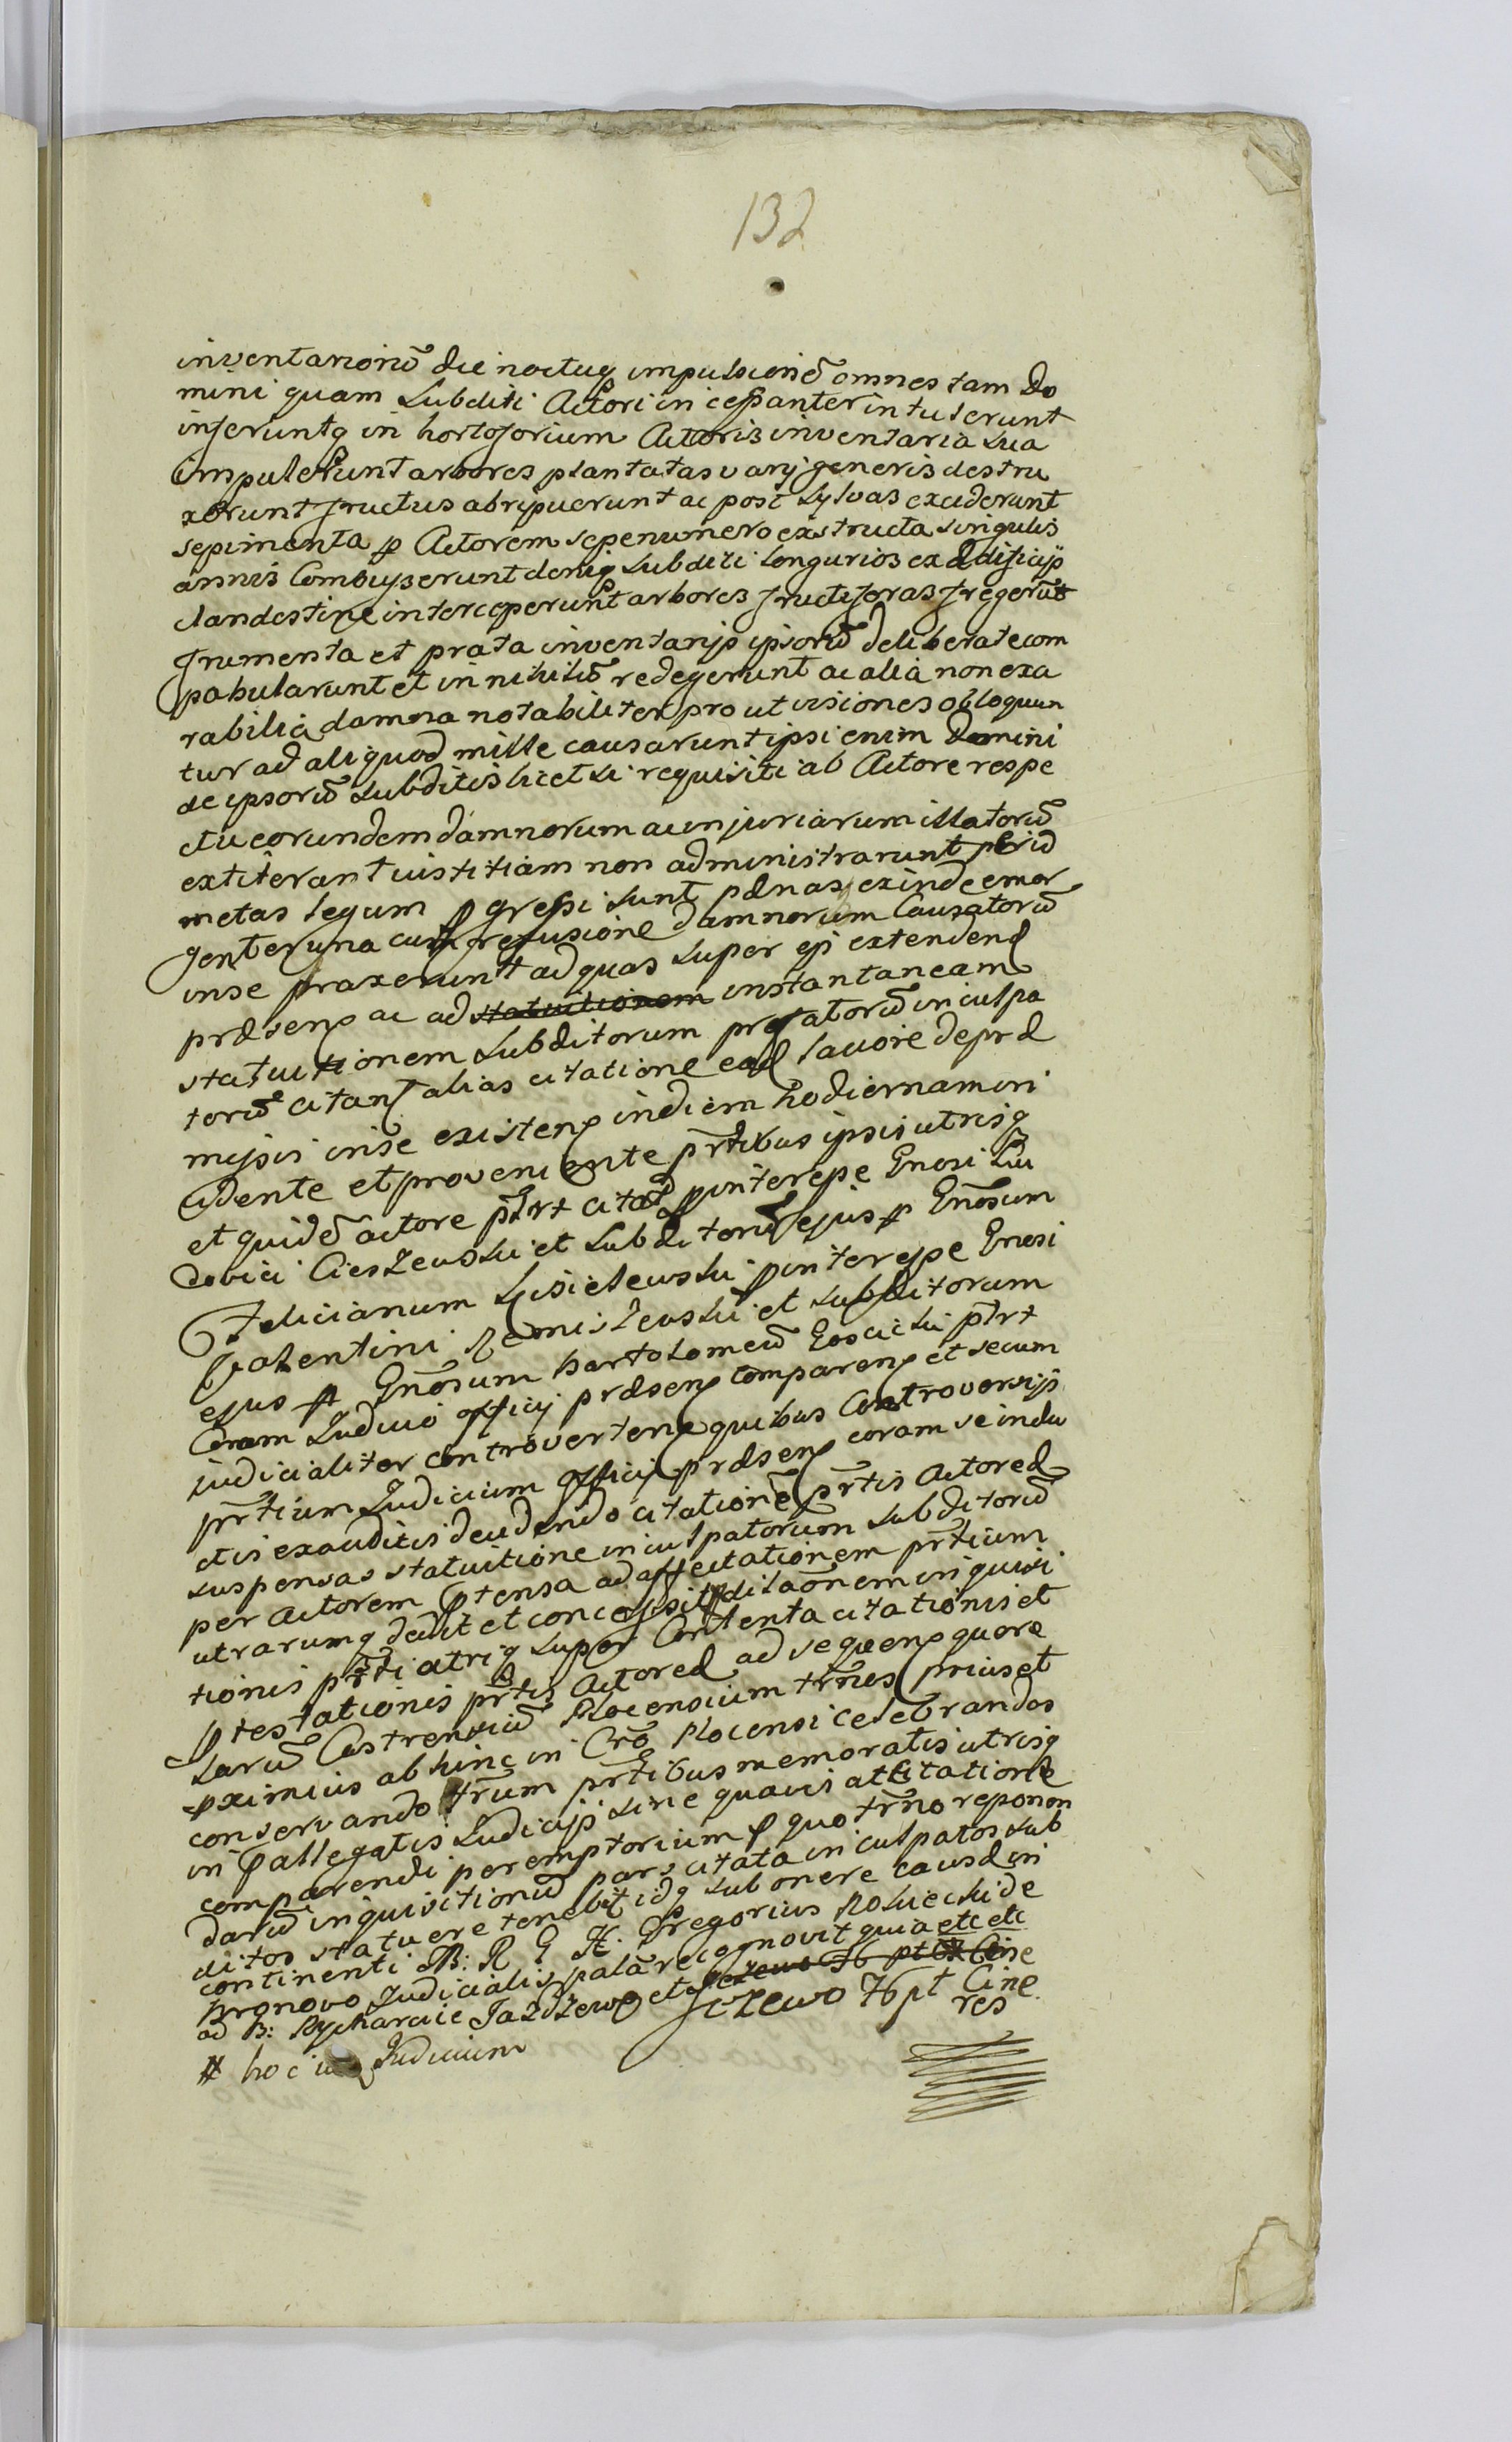 132
inventariorū die noctuq impulsionē omnes tam Do
mini quam Subditi Actori incessanter intulerunt
inferuntq in hortoforium Actoris inventaria sua
impulerunt arbores plantatas varij generis destru
xerunt fructus abripuerunt ac post sylvas exciderunt
sepimenta p Actorem sepenumero exstructa singulis
annis Combusserunt deniq subditi longurios ex ædificijs
clandestine interceperunt arbores fructiferas fregerūt
frumenta et prata inventarijs ipsorū deliberate com
pabularunt et in nihilū redegerunt ac alia non exa
rabilia damna notabiliter pro ut visiones obloquun
tur ad aliquod mille causarunt ipsi enim Domini
de ipsorū subditis licet si requisiti ab Actore respe
ctu eorundem damnorum ac injuriarum illatorū
extiterant iustitiam non administrarunt per id
metas legum pgressi sunt pænas exinde emer
gentes una cum refusione damnorum Causatorū
in se traxerunt ad quas super ej extendend
præsens ac ad statuitionem instantaneam
statuitionem subditorum prefatorū inculpa
torū citant alias citatione ead lavore depræ
missis in se existens in diem hodiernam in
cidente et proveniente prtibus ipsis utrisq
et quidē actore ptrt citat p interepe Gnosi Lu
dovici Cieszewski et Subditorū ejus p Gnosum
Felicianum Lisielewski p interepe Gnosi
Valentini Remiszewski et subditorum
ejus p Gnosum Bartolomeū Goscicki ptrt
Coram Judicio officij præsens comparens et secum
judicialiter controvertens quibus Controversijs
prtium Judicium officij præsens coram se indu
ctis exauditis decidendo citationē prtis Actoreæ
suspensas statuitione inculpatorum subditorū
per actorem ptensa ad affectationem prtium
utrarumq dedit et concessit dilaōnem inquisi
tionis prti utriq super Contenta citationis et
ptestationis prtis Actoreæ ad sequens quere
larū Castrensiū Plocensium trnos prius et
pximius ab hinc in Cro Plocensi celebrandos
conservando trum prtibus memoratis utrisq
in pallegatis Judicijs sine quavis attitatione
comparendi peremptorium p quo trno reponen
darū inquisitionū pars citata inculpatos sub
ditos statuere tenebit idq sub onere causæ in
continenti B: R G H. Gregorius Rokiecki de
Bronowo Judicialis palā recognovit quia etc etc
ad B: Rycharcie Jazdzewo et Jezewo 76 pt Cine
Jezewo 76 pt Cine
res
# hoc Judicium